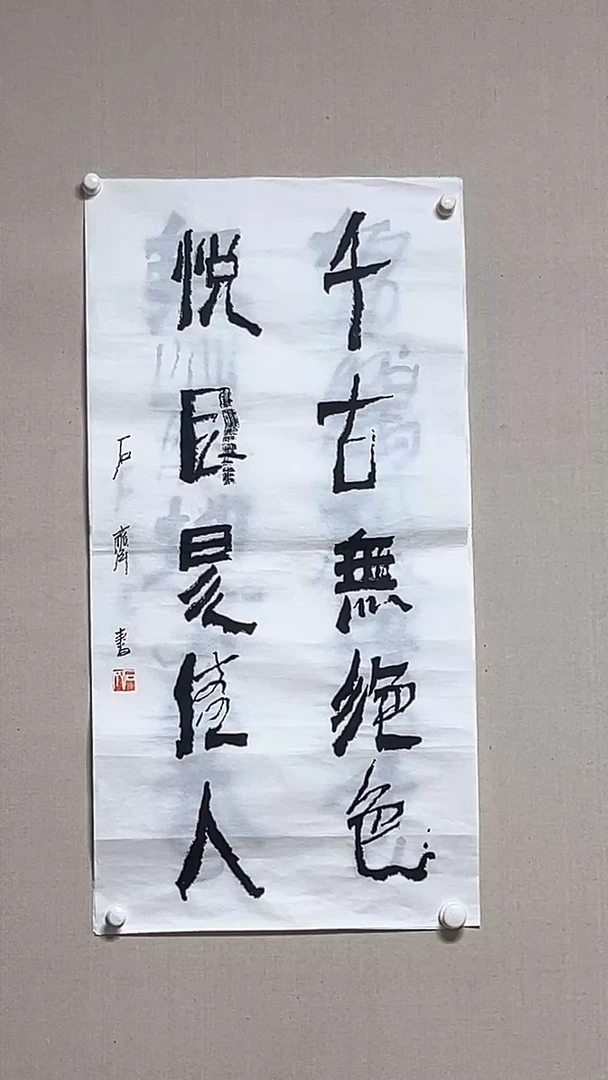 千古無绝色
悦目是佳人
石齋書